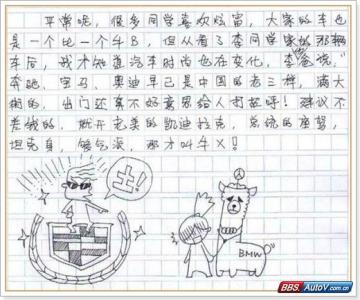 平常呢,很多同学喜欢炫富,大家的车也
是一个比一个牛B,但从看了李同学家的那辆
车后,我才知道汽车时尚也在变化,李爸说:"
奔驰、宝马、奥迪早已是中国的老三样,满大
街的,出门还真不好意思给人打招呼!建议不
差钱的,就开老美的凯迪拉克,总统的座驾,
坦克身,够气派,那才叫牛X!
土!
BMW
BBS.AutoV.com.cn